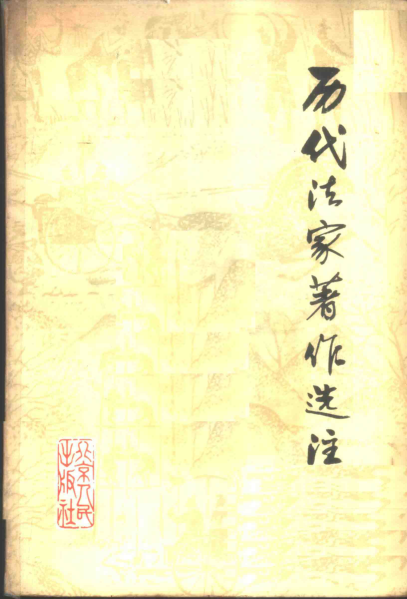 历代法家著作选注
北京人民
出版社